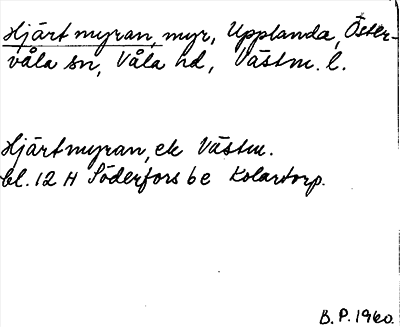 Hjärtmyran, myr, Upplanda, Öster-
våla sn, Våla hd, Västm. l.
Hjärtmyran, ek Västm.
bl. 12 H Söderfors 6 e Kolartorp.
B. P. 1960.